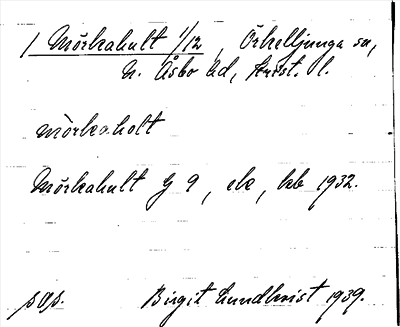 1 Mörkahult 1/12, Örkelljunga sn,
N. Åsbo hd, Krist. l.
mörkaholt
Mörkahult G 9, ek, kb 1932.
Birgit Lundkvist 1939.